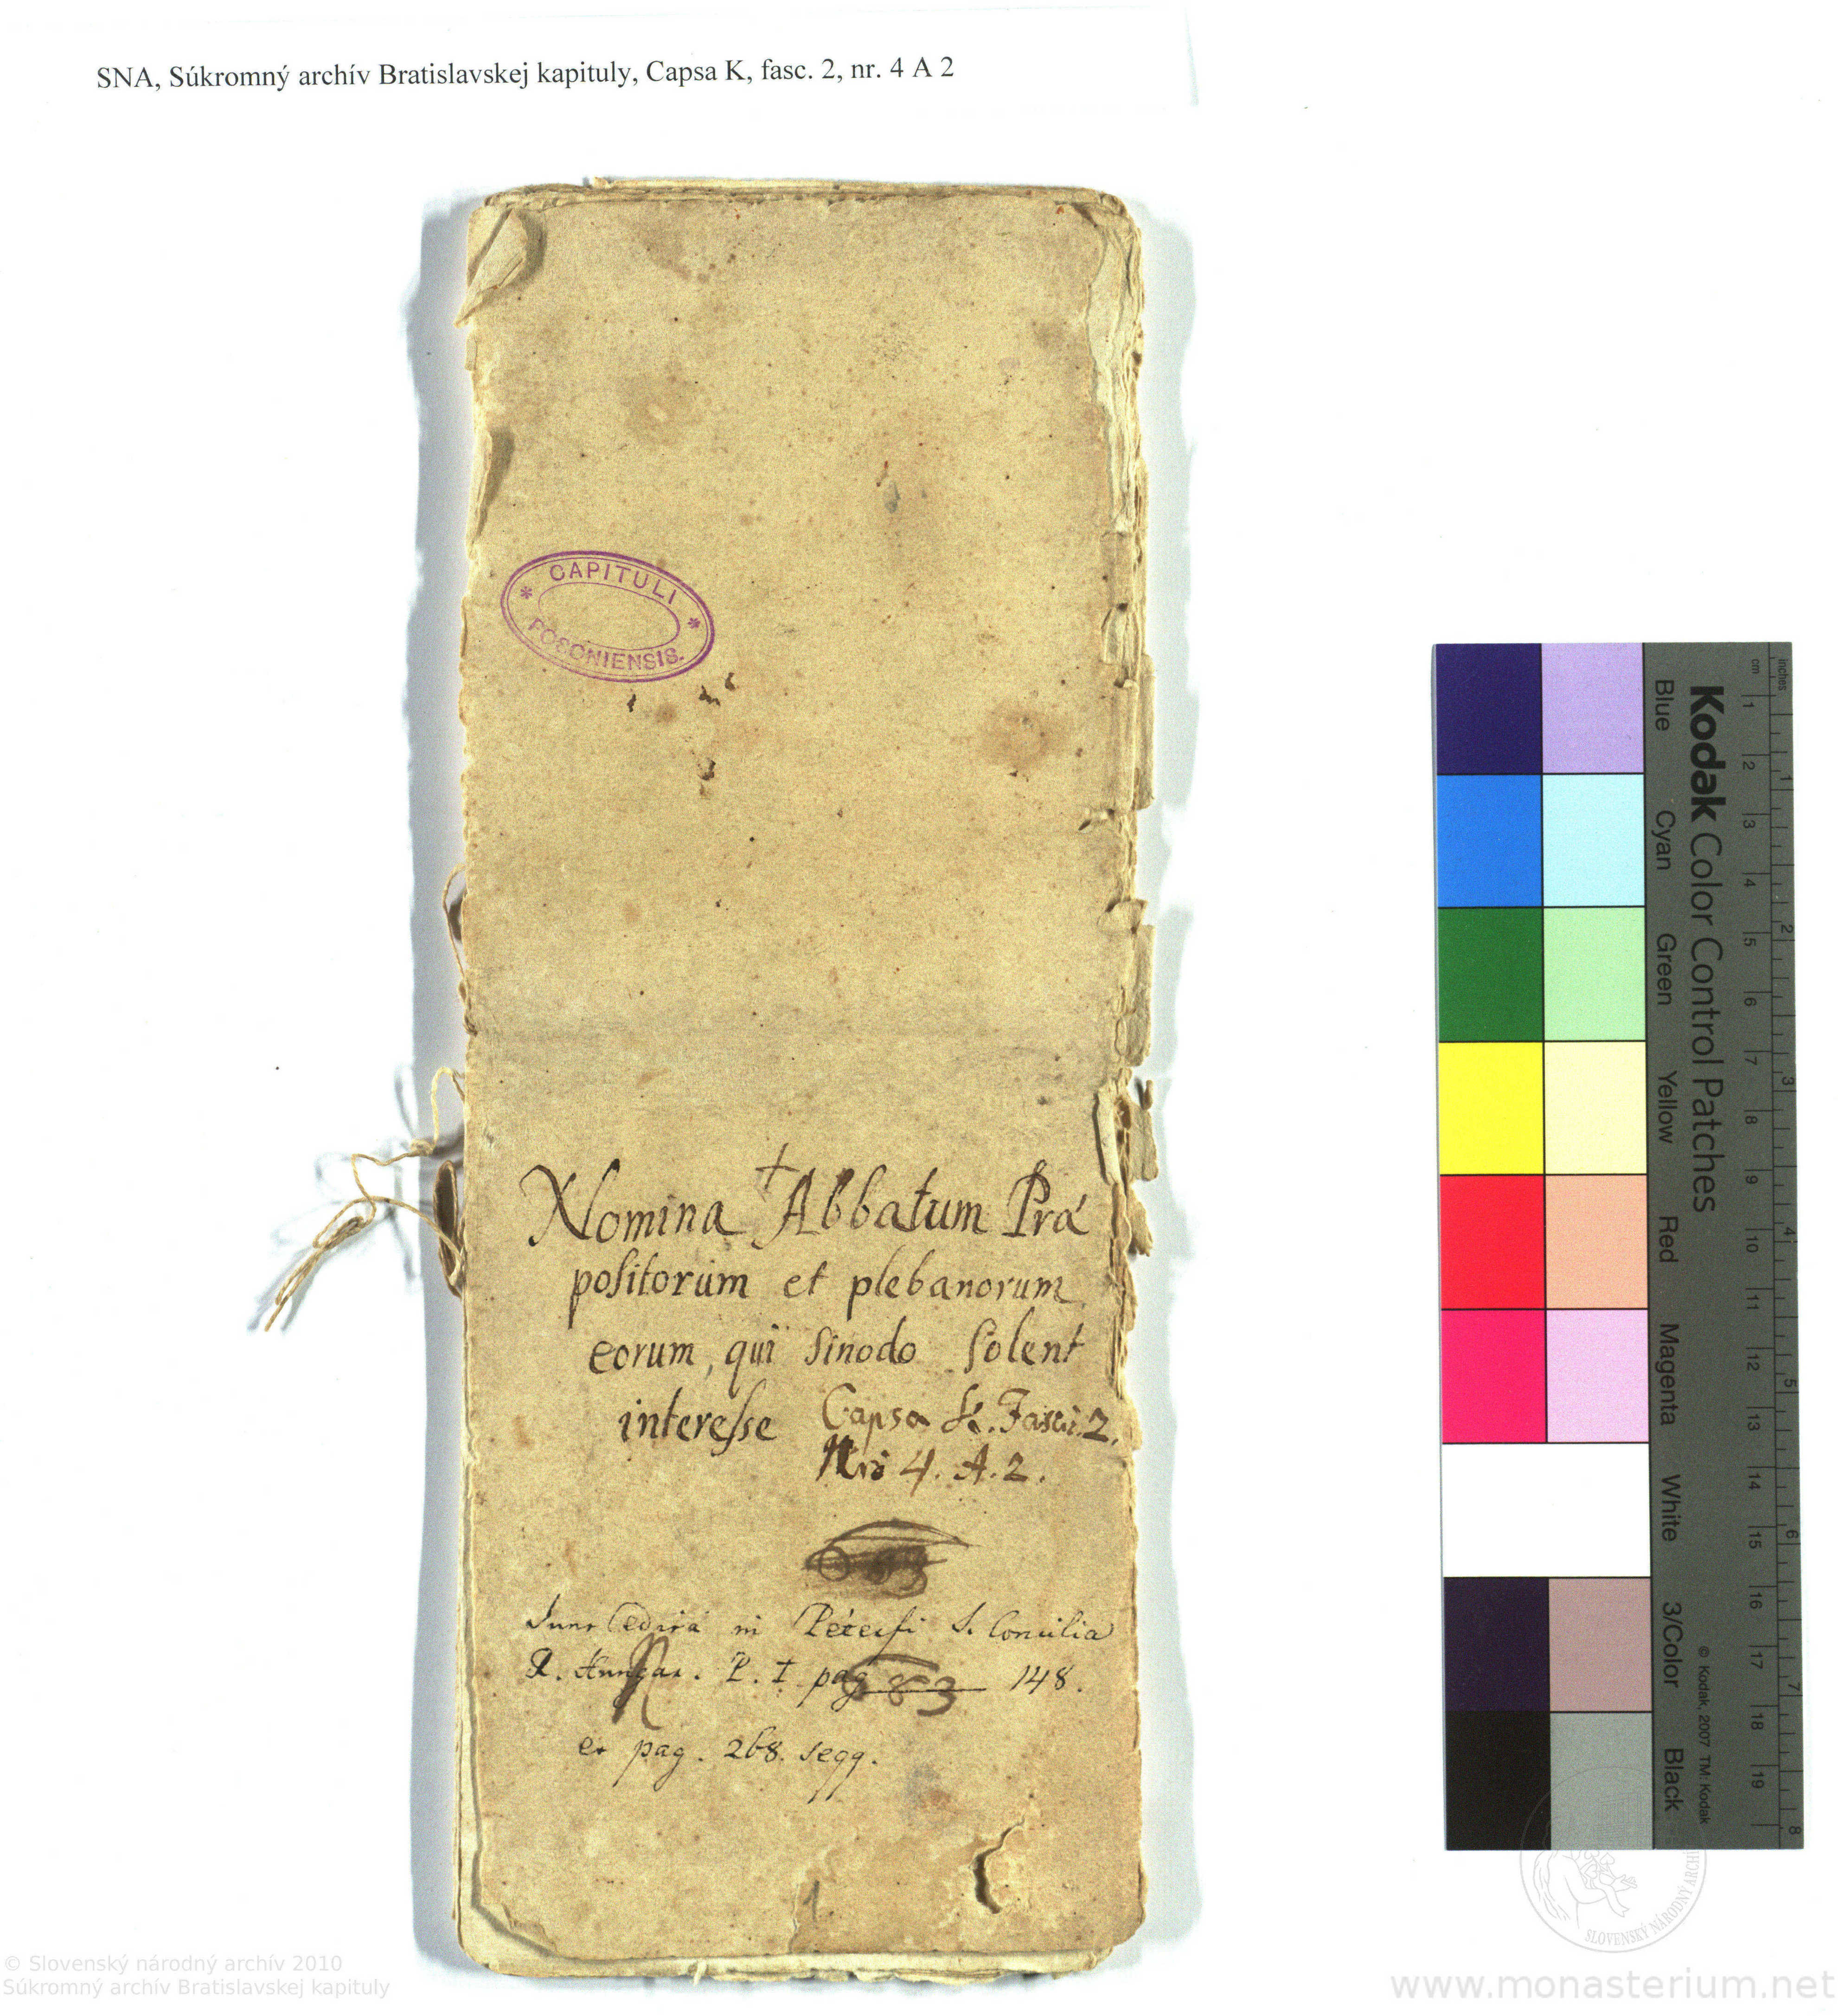 SNA, Súkromný archív Bratislavskej kapituly, Capsa K, fasc. 2, nr. 4 A 2
CAPITULI
POSONIENSIS.
Nomina Abbatum Præ
positorum et plebanorum
eorum, qui Sinodo Solent
interesse Capsa K. Fasci. 2.
Nro 4. A. 2.
Sunt edita in Péterfi S. Concilia
R. Hungar. P. I pag 148.
et pag. 268. seqq.
1
Kodak Color Control Patches
Blue Cyan Green Yellow Red Magenta White 3/Color Black
© Kodak, 2007 TM: Kodak
inches 1 2 3 4 5 6 7 8
cm 1 2 3 4 5 6 7 8 9 10 11 12 13 14 15 16 17 18 19
SLOVENSKÝ NÁRODNÝ ARCHÍV
© Slovenský národný archív 2010
Súkromný archív Bratislavskej kapituly
www.monasterium.net